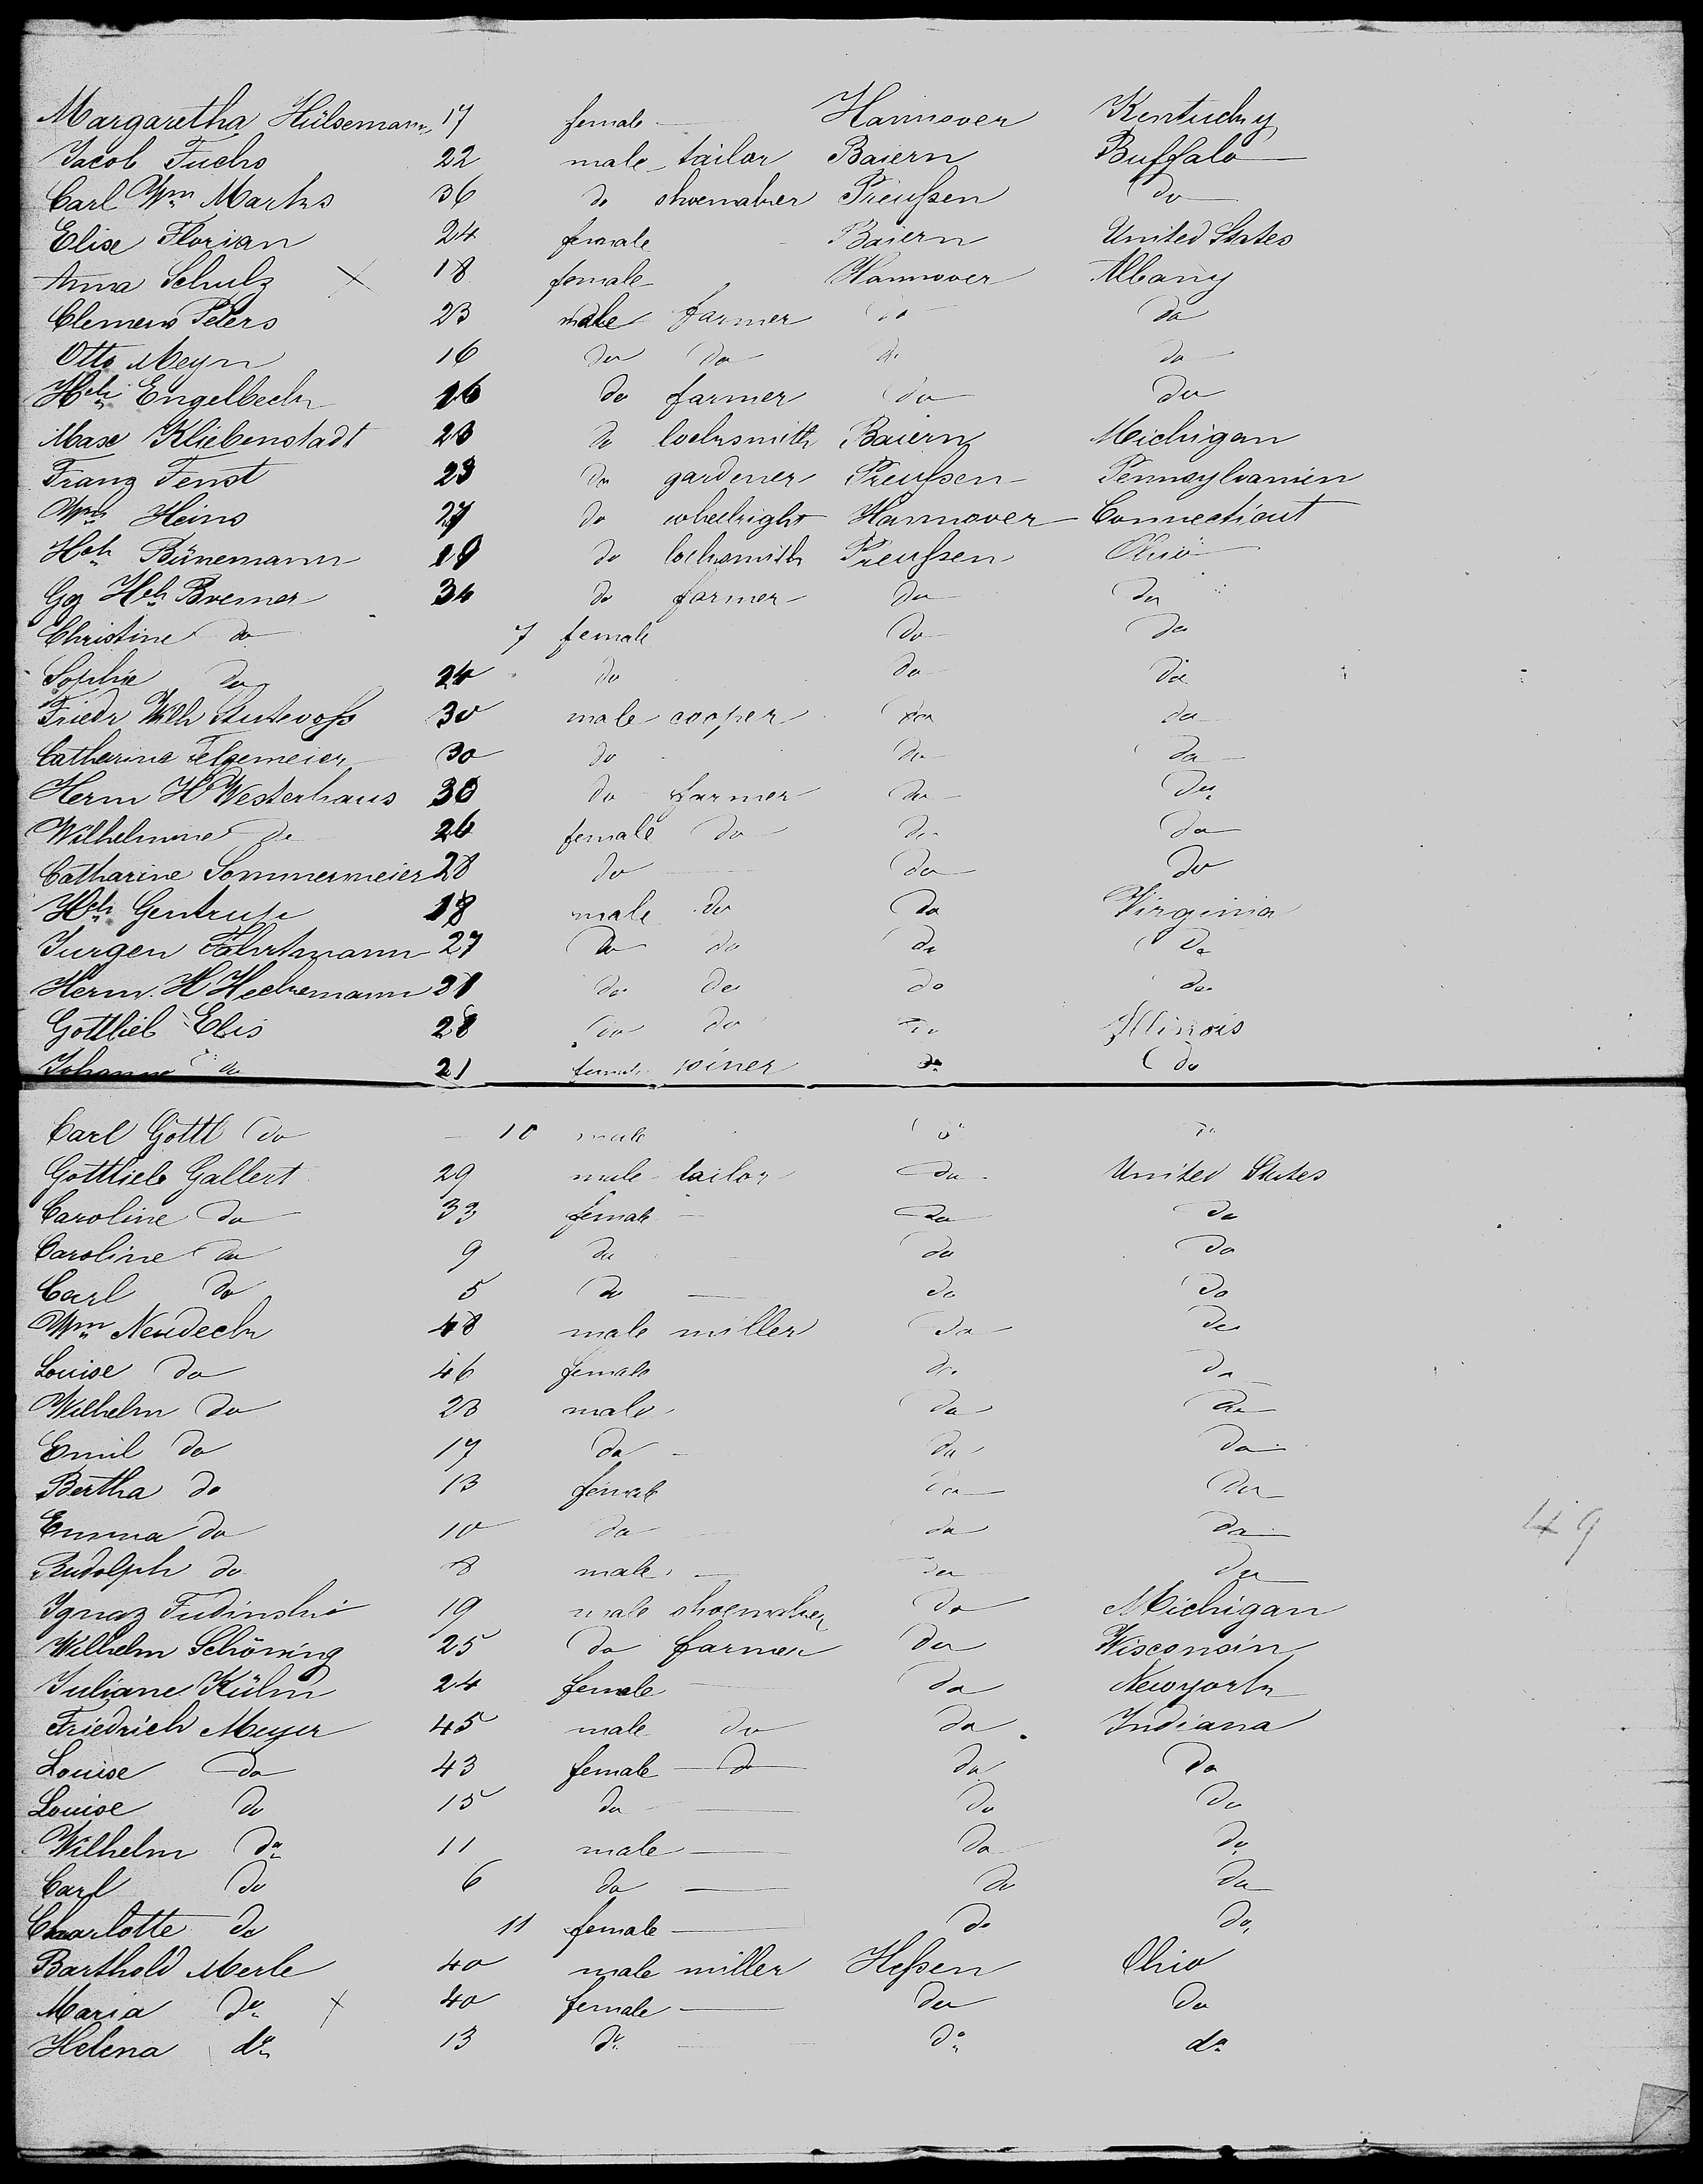 Margaretha Hülsemann 17 female Hannover Kentucky
Jacob Fuchs 22 male tailor Baiern Buffalo
Carl Wm Marks 36 do shoemaker Preußen do
Elise Florian 24 female Baiern United States
Anna Schulz X 18 female Hannover Albany
Clemens Peters 23 male farmer do do
Otto Meyn 16 do do do do
Hch Engelbeck 16 do farmer do do
Max Kliebenstadt 23 do locksmith Baiern Michigan
Franz Fenst 23 do gardener Preußen Pennsylvanien
Wm Heins 27 do wheelright Hannover Connecticut
Hch Bünemann 19 do locksmith Preußen Ohio
Gg Hch Bremer 34 do farmer do do
Christine do 7 female do do
Sophie do 24 do do do
Friedr Wilh 30 male cooper do do
Catharine Telgemeier 30 do do do
Herm H Westerhaus 30 do farmer do do
Wilhelmine do 26 female do do do
Catharine Sommermeier 28 do do do
Hch Gentrup 18 male do do Virginia
Jurgen Fahrtmann 27 do do do do
Herm. H Heckemann 21 do do do do
Gottlieb Ebis 28 do do do Illinois
Johanne do 21 female joiner do do
Carl Gottl do 10 male do do
Gottlieb Gallert 29 male tailor do United States
Caroline do 33 female do do
Caroline do 9 do do do
Carl do 5 do do do
Wm Neudeck 48 male miller do do
Louise do 46 female do do
Wilhelm do 23 male do do
Emil do 17 do do do
Bertha do 13 female do do
Emma do 10 do do do 49
Rudolph do 8 male do do
Ignaz Fudinski 19 male shoemaker do Michigan
Wilhelm Schöning 25 do farmer do Wisconsin
Juliane Kühn 24 female do Newyork
Friedrich Meyer 45 male do do Indiana
Louise do 43 female do do do
Louise do 15 do do do
Wilhelm do 11 male do do
Carl do 6 do do do
Charlotte do 11 female do do
Barthold Merle 40 male miller Heßen Ohio
Maria do X 40 female do do
Helena do 13 do do do